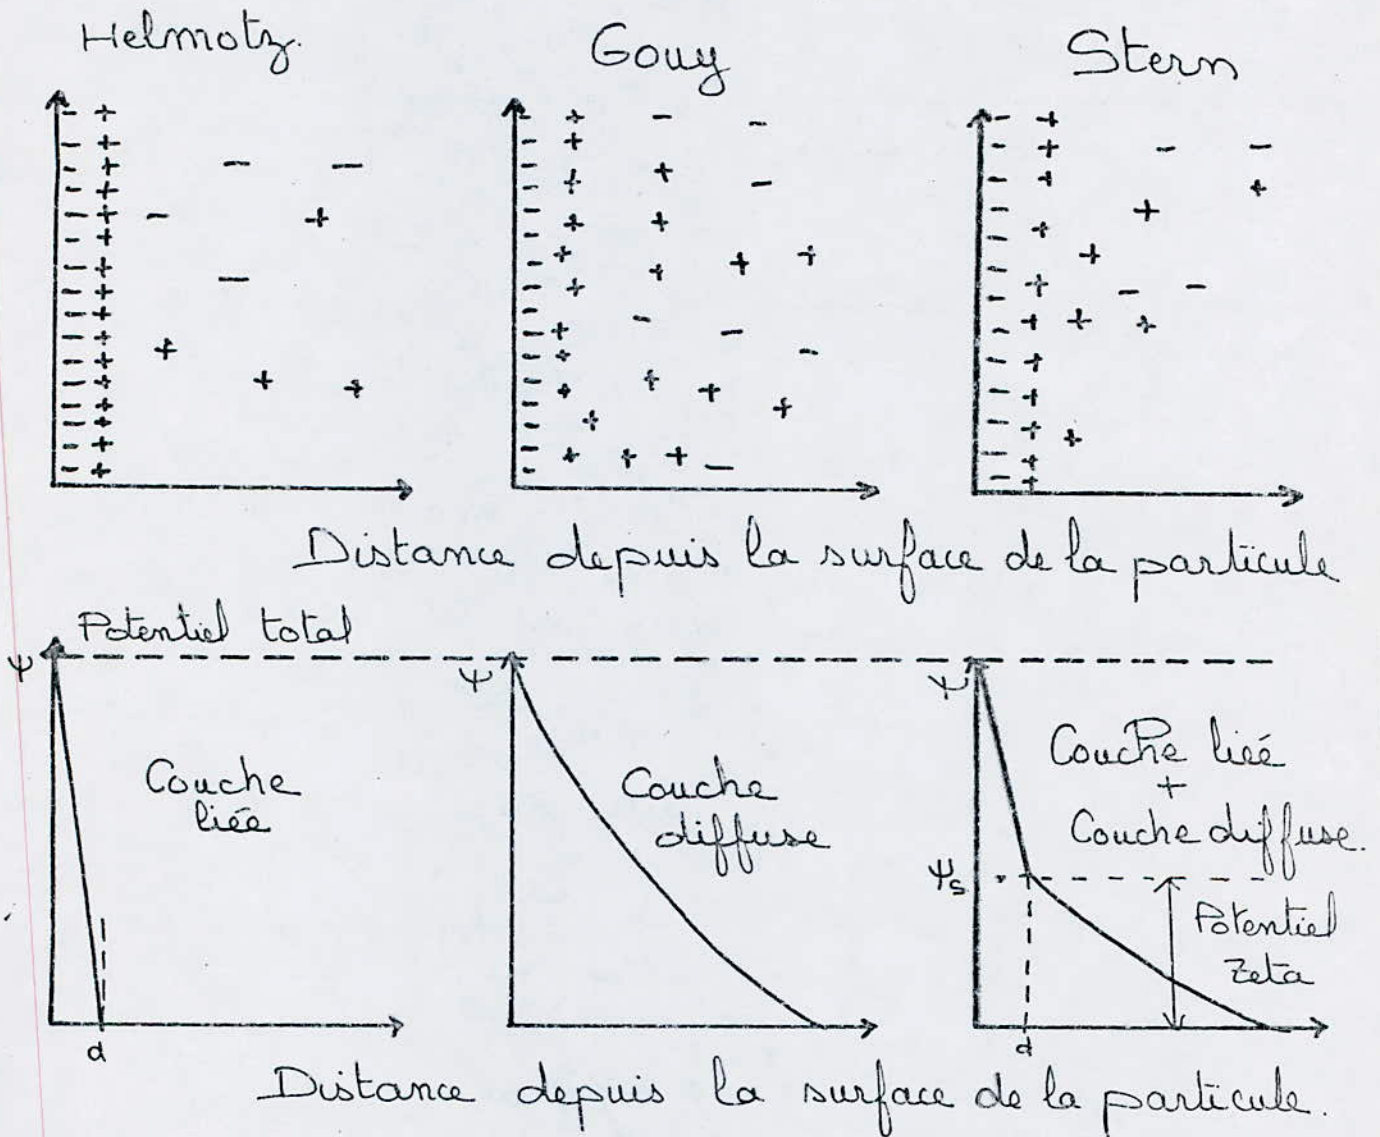 Helmotz.
Gouy
Stern
Distance depuis la surface de la particule
Potentiel total
ψ
ψ
ψ
Couche
liée
Couche
diffuse
Couche liée
+
Couche diffuse.
ψs
Potentiel
Zeta
d
d
Distance depuis la surface de la particule.